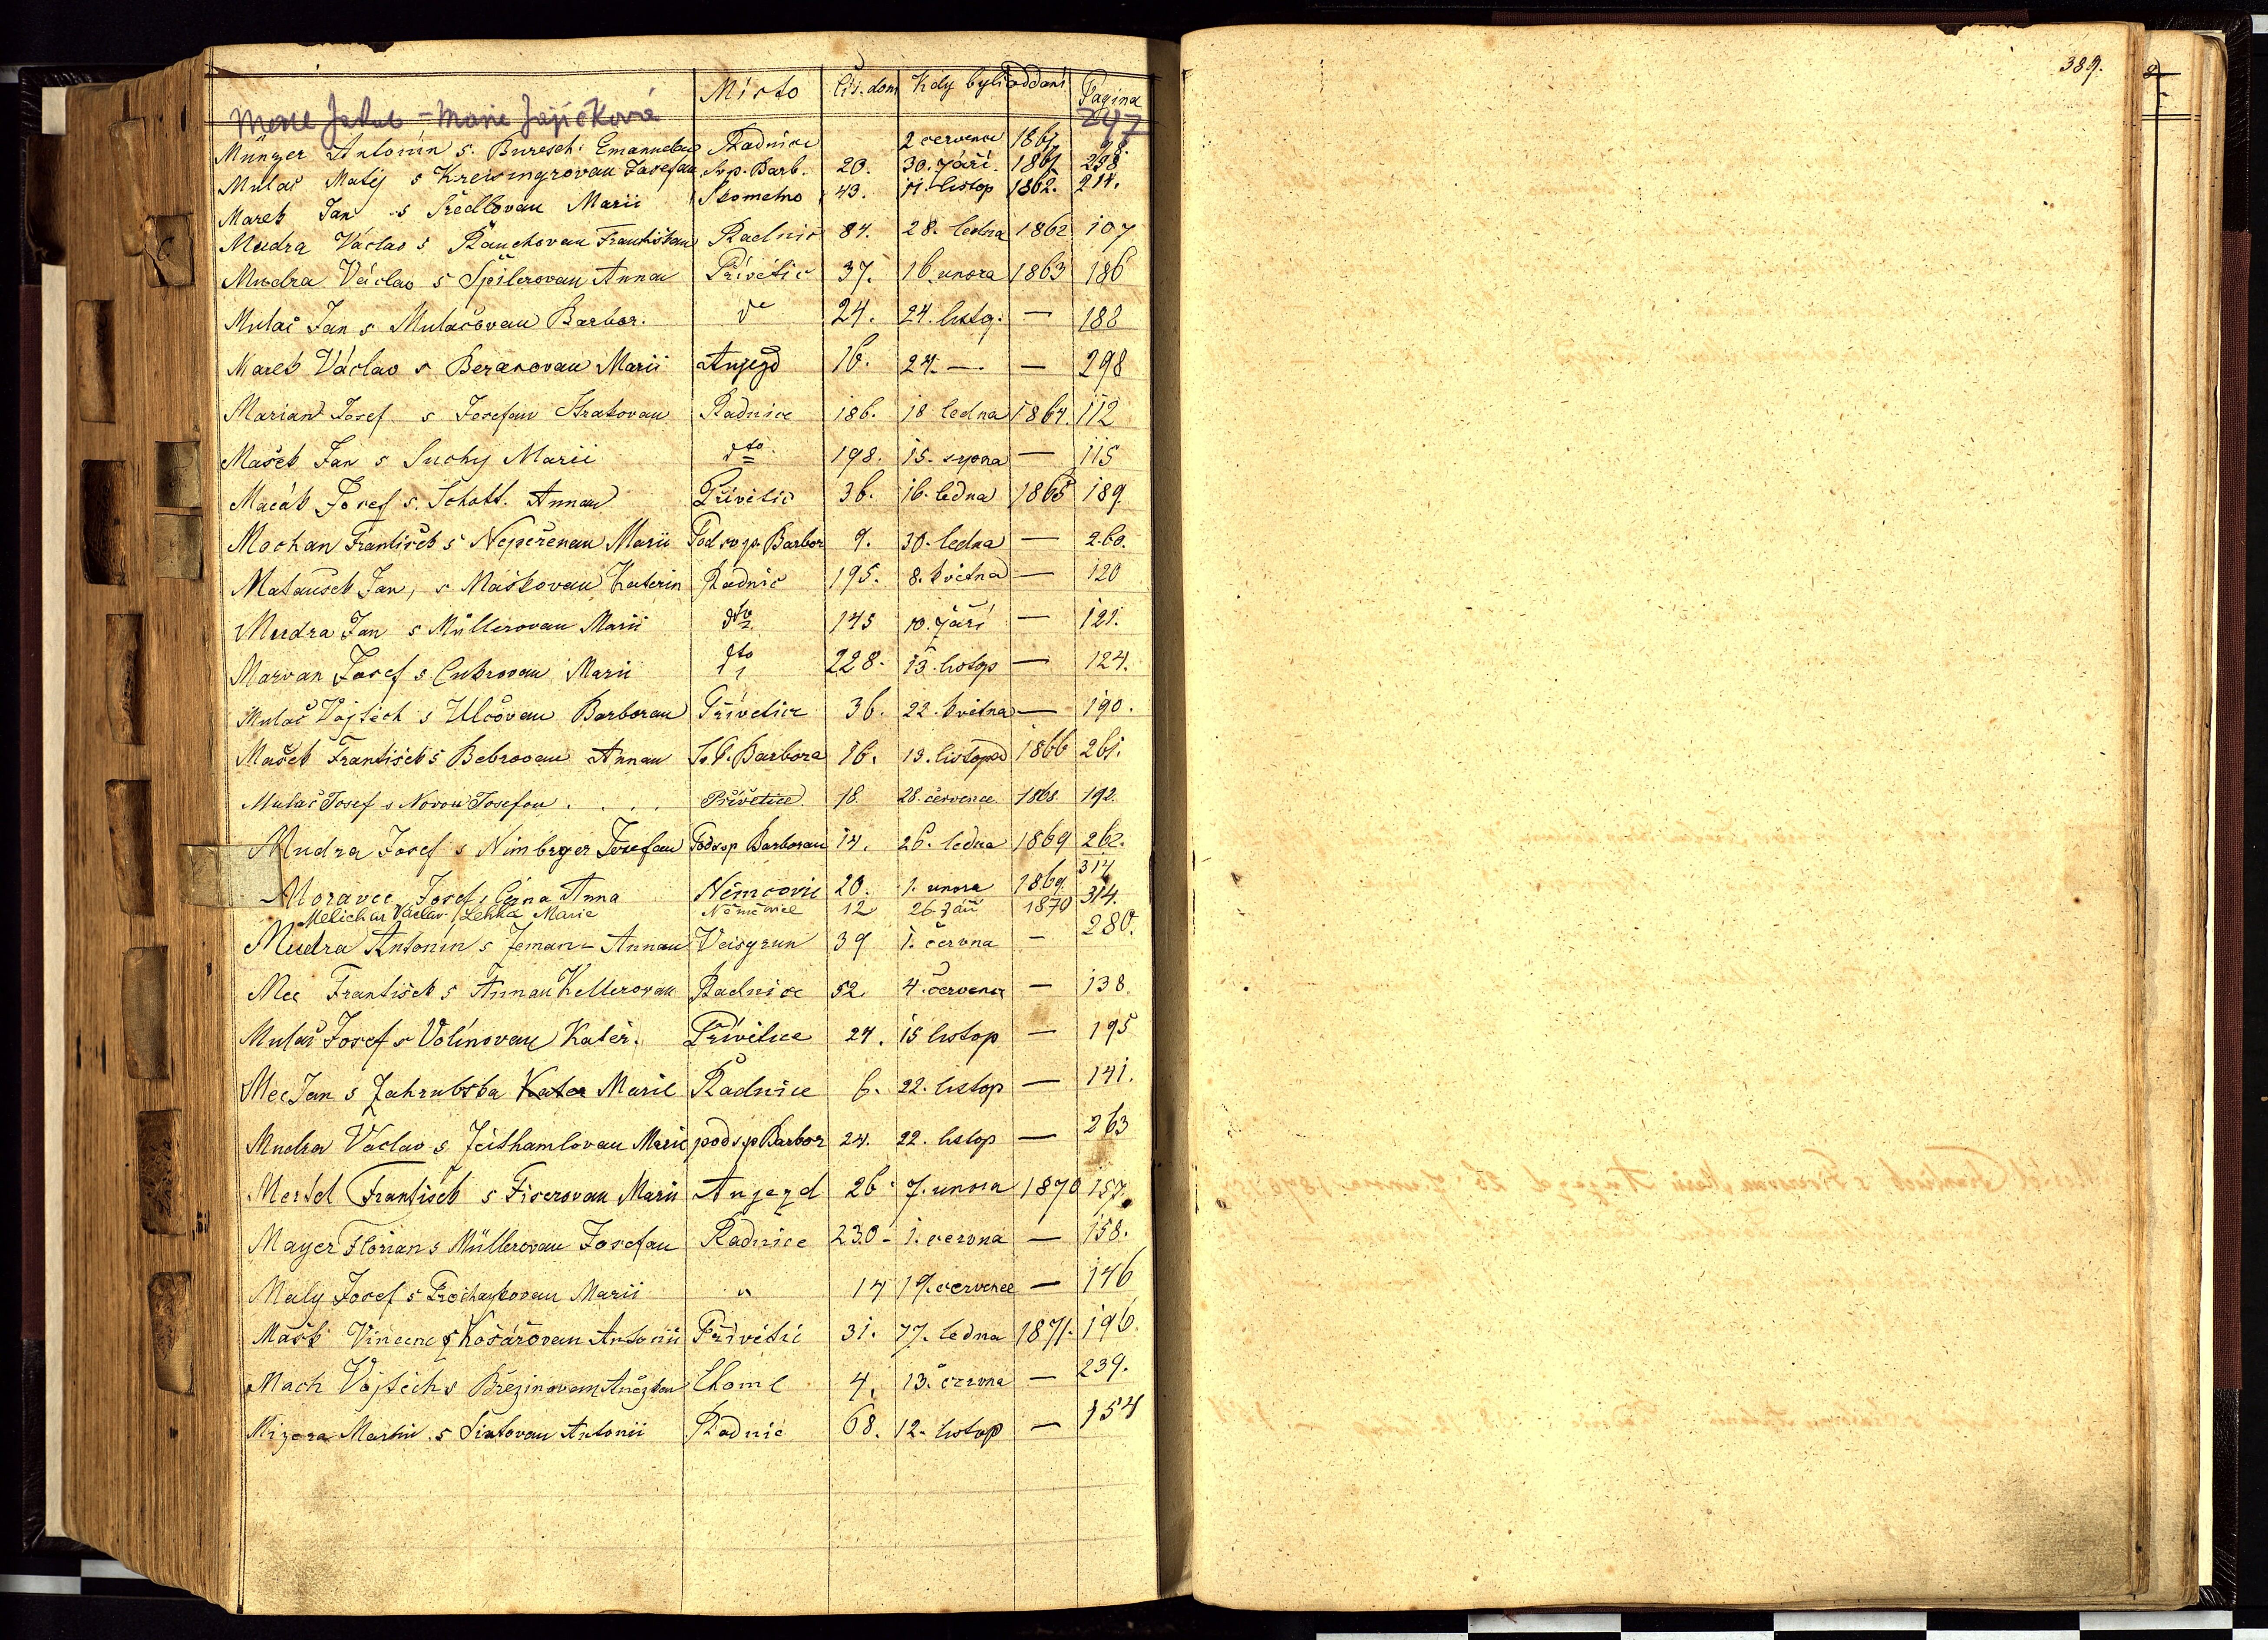 Místo Čís. dom Kdy byli oddaní Pagina
Jakub - Marie 247
Münzer Antonín s. Buresch: Emanuelou Radnice 2 července 1861
Mulač Matěj s Kreisingrovau Josefau Svp. Barb. 20. 30. září 1861 258
Marek Jan s Sedlovau Marii Skomelno 43. 11. listop 1862. 214.
Mudra Václav s Rauchovau Františkau Radnic 84. 28. ledna 1862 107
Mudra Václav s Špilerovau Annau Přívětic 37. 16 unora 1863 186
Mulač Jan s Mulačovau Barbor. do 24. 24. listop. — 188
Marek Václav s Beranovau Marii Aujezd 16. 24. — — 298
Marian Josef s Josefau Stratovau Radnice 186. 18 ledna 1864. 112
Mašek Jan s Suchy Marii dto 198. 15. srpna — 115
Macák Josef s. Schott. Annau Přívětic 36. 16. ledna 1865 189
Mochan František s Nepeřenau Marii Pod svp. Barbor 9. 30. ledna — 260.
Matausek Jan, s Maškovau Kateřin Radnic 195. 8. května — 120
Mudra Jan s Müllerovau Marii dto 145 10. září — 121.
Marvan Josef s Cukrovau Marii dto 228. 13. listop — 124.
Mulač Vojtěch s Ulčovau Barborau Přívětice 36. 22. května — 190.
Mašek František s Bebrovau Annau Sv. Barbora 16. 13. listopad 1866 261.
Mulač Josef s Novou Josefou . . . . Přívětice 18. 28. července 1868. 192.
Mudra Josef s Nimbrger Josefau Podsvp Barborau 14. 26. ledna 1869 262.
314
Moravec Josef s Černa Anna Němcovic 20. 1. unora 1869. 314.
Melichar Václav / Lehká Marie Němčovice 12 26. září 1870
Mudra Antonín s Zeman- Annau Veisgrun 39 1. června — 280.
Mec František s Annau Kellerovau Radnice 52 4. července — 138.
Mulač Josef s Volínovau Kateř. Přívětice 24. 15 listop — 195
Mec Jan s Zahrubska Kater Marie Radnice 6. 22. listop — 141.
Mudra Václav s Zeithamlovau Marie pod svp Barbor 24. 22. listop — 263
Mertel František s Fiserovau Marii Aujezd 26 7. unora 1870 157.
Mayer Florian s Müllerovau Josefau Radnice 230 - 1. června — 158.
Maly Josef s Procházkovau Marii " 14 19. července — 146
Mašk Vincenc s Košářovau Antonii Přívětic 31. 17. ledna 1871. 196.
Mach Vojtěch s Březinovau Anežkau Chomle 4. 13. června — 239.
Mizera Martin s Antonii Radnic 68. 12. listop — 154
389.